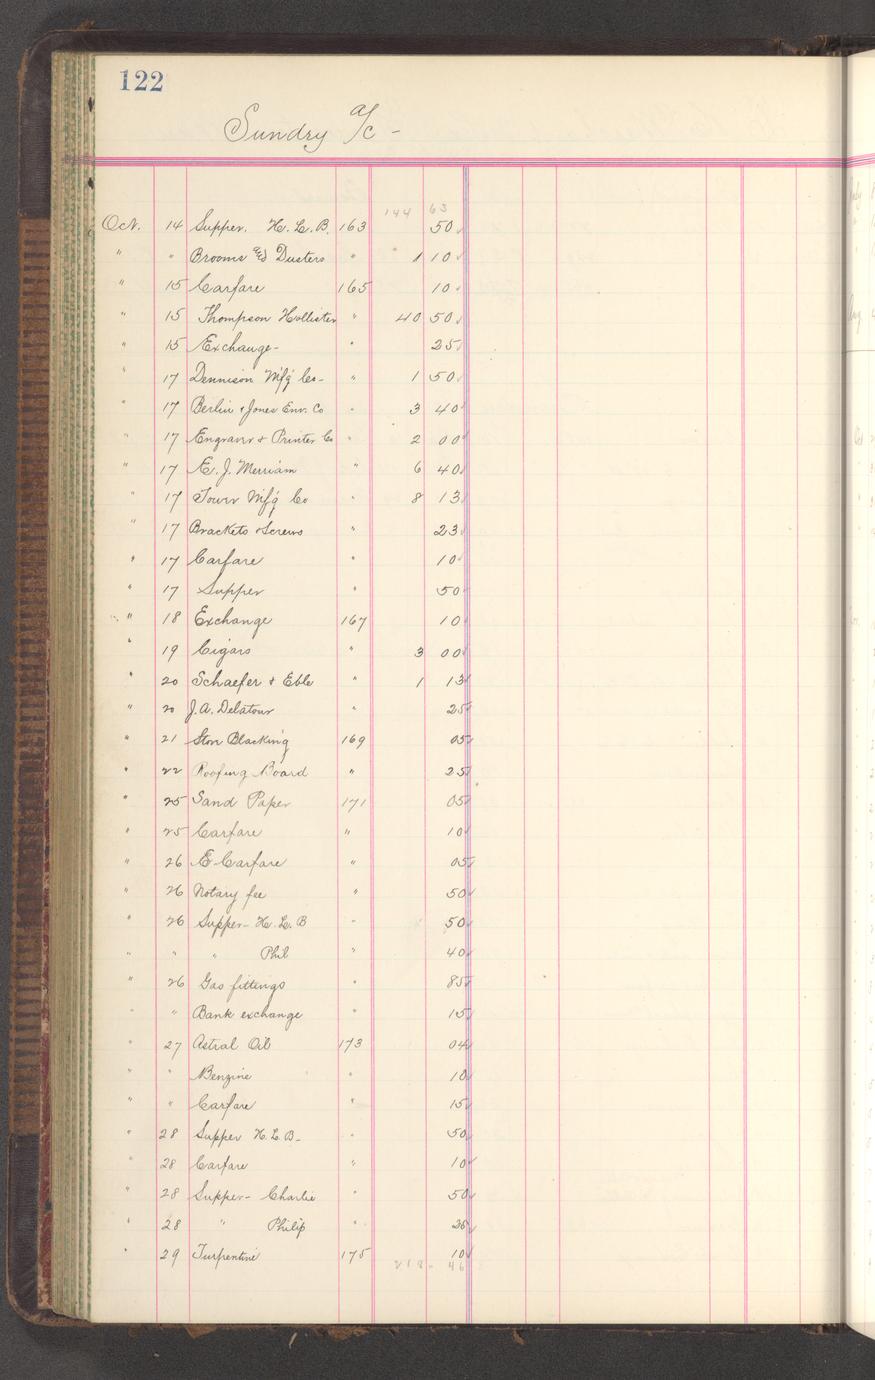 122
Sundry a/c -
144 63
Oct. 14 Supper. H. L. B. 163 50
" " Brooms and Dusters " 1 10
" 15 Carfare 165 10
" 15 Thompson Hollister " 40 50
" 15 Exchange - " 25
" 17 Dennison Mfg Co - " 1 50
" 17 Berlin & Jones Env. Co " 3 40
" 17 Engraver & Printer Co " 2 00
" 17 E. J. Merriam " 6 40
" 17 Tower Mfg Co " 8 13
" 17 Brackets & Screws " 23
" 17 Carfare " 10
" 17 Supper " 50
" 18 Exchange 167 10
" 19 Cigars " 3 00
" 20 Schaefer & Eble " 1 13
" 20 J. A. Delatour " 25
" 21 Stov Blacking 169 05
" 22 Roofing Board " 25
" 25 Sand Paper 171 05
" 25 Carfare " 10
" 26 E Carfare " 05
" 26 Notary fee " 50
" 26 Supper - H. L. B " 50
" " " Phil " 40
" 26 Gas fittings " 85
" " Bank exchange " 15
" 27 Astral Oil 173 04
" " Benzine " 10
" " Carfare " 15
" 28 Supper H. L. B - " 50
" 28 Carfare " 10
" 28 Supper - Charlie " 50
" 28 " Philip "
" 29 Turpentine 175 10
218 - 46